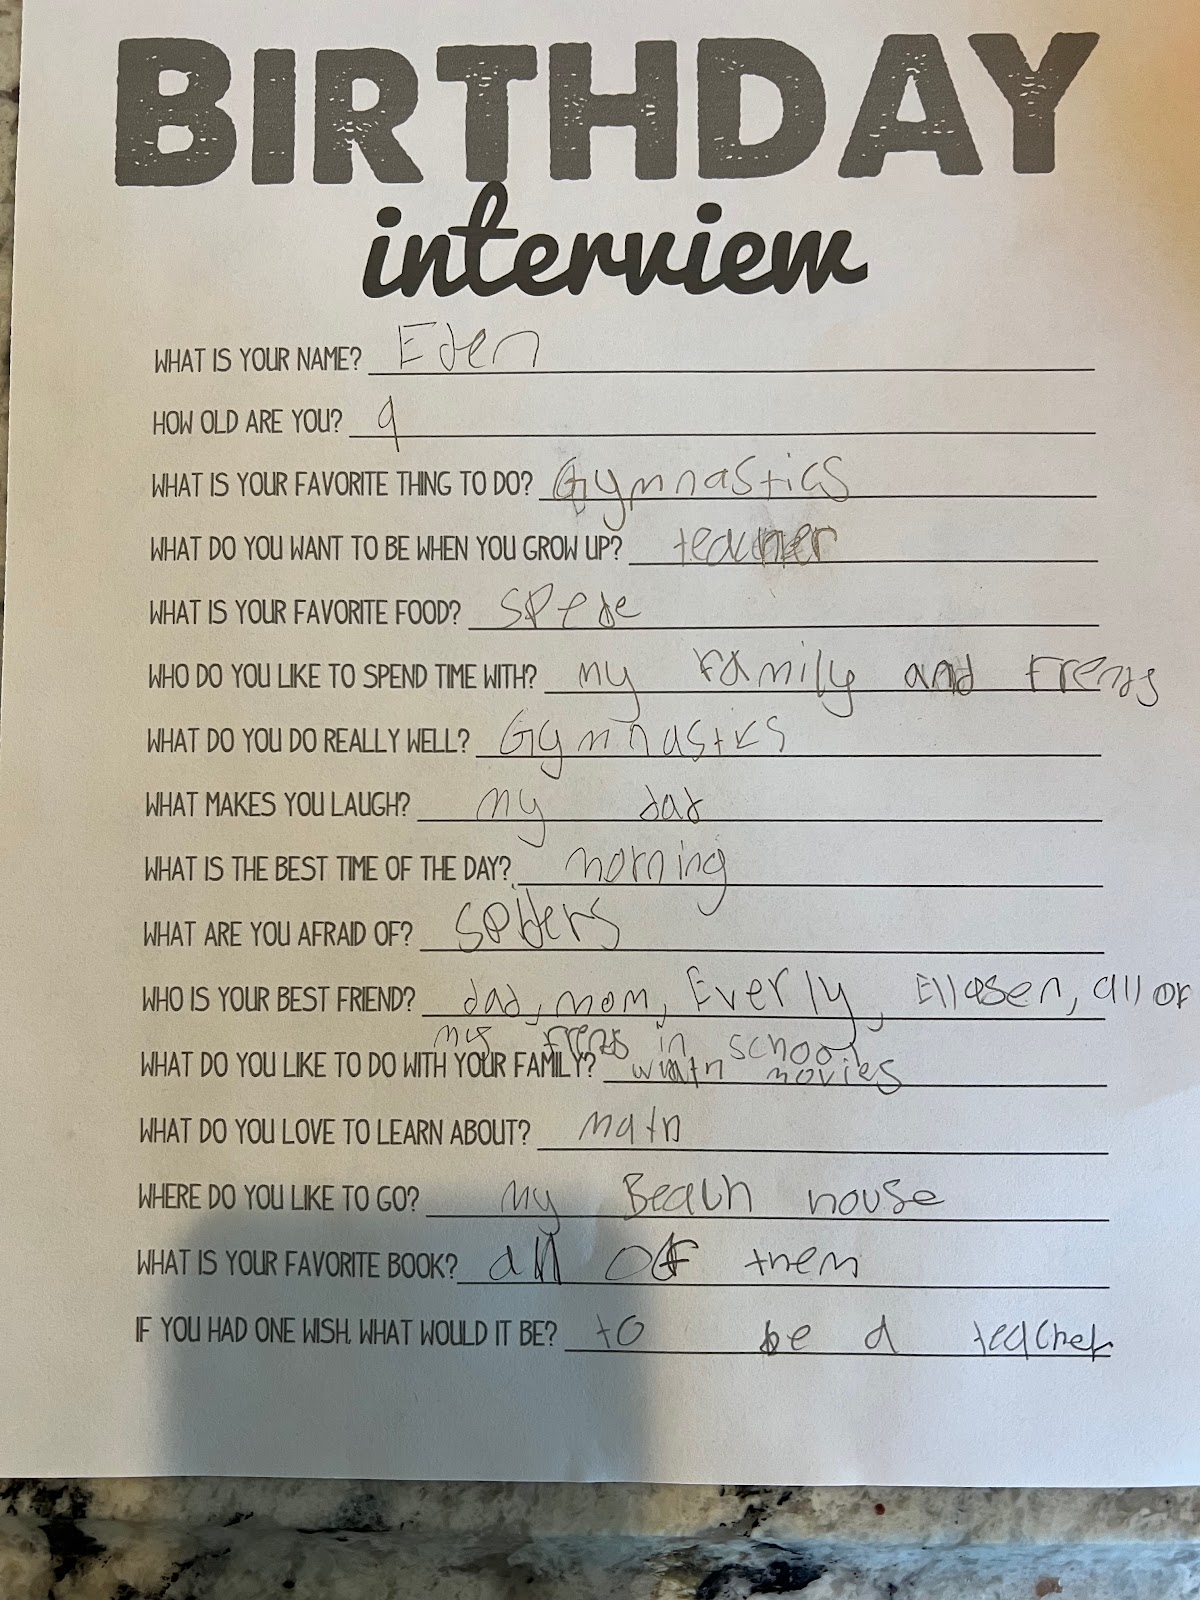 BIRTHDAY
interview
WHAT IS YOUR NAME? Eden
HOW OLD ARE YOU? 9
WHAT IS YOUR FAVORITE THING TO DO? Gymnastics
WHAT DO YOU WANT TO BE WHEN YOU GROW UP? teacher
WHAT IS YOUR FAVORITE FOOD?
WHO DO YOU LIKE TO SPEND TIME WITH? my family and Frends
WHAT DO YOU DO REALLY WELL? Gymnastics
WHAT MAKES YOU LAUGH? my dad
WHAT IS THE BEST TIME OF THE DAY? morning
WHAT ARE YOU AFRAID OF? Spiders
WHO IS YOUR BEST FRIEND? dad, mom, Everly, Ellasen, all of
my frends in school
WHAT DO YOU LIKE TO DO WITH YOUR FAMILY? movies
WHAT DO YOU LOVE TO LEARN ABOUT? math
WHERE DO YOU LIKE TO GO? my Beach house
WHAT IS YOUR FAVORITE BOOK? all of them
IF YOU HAD ONE WISH, WHAT WOULD IT BE? to be a teacher